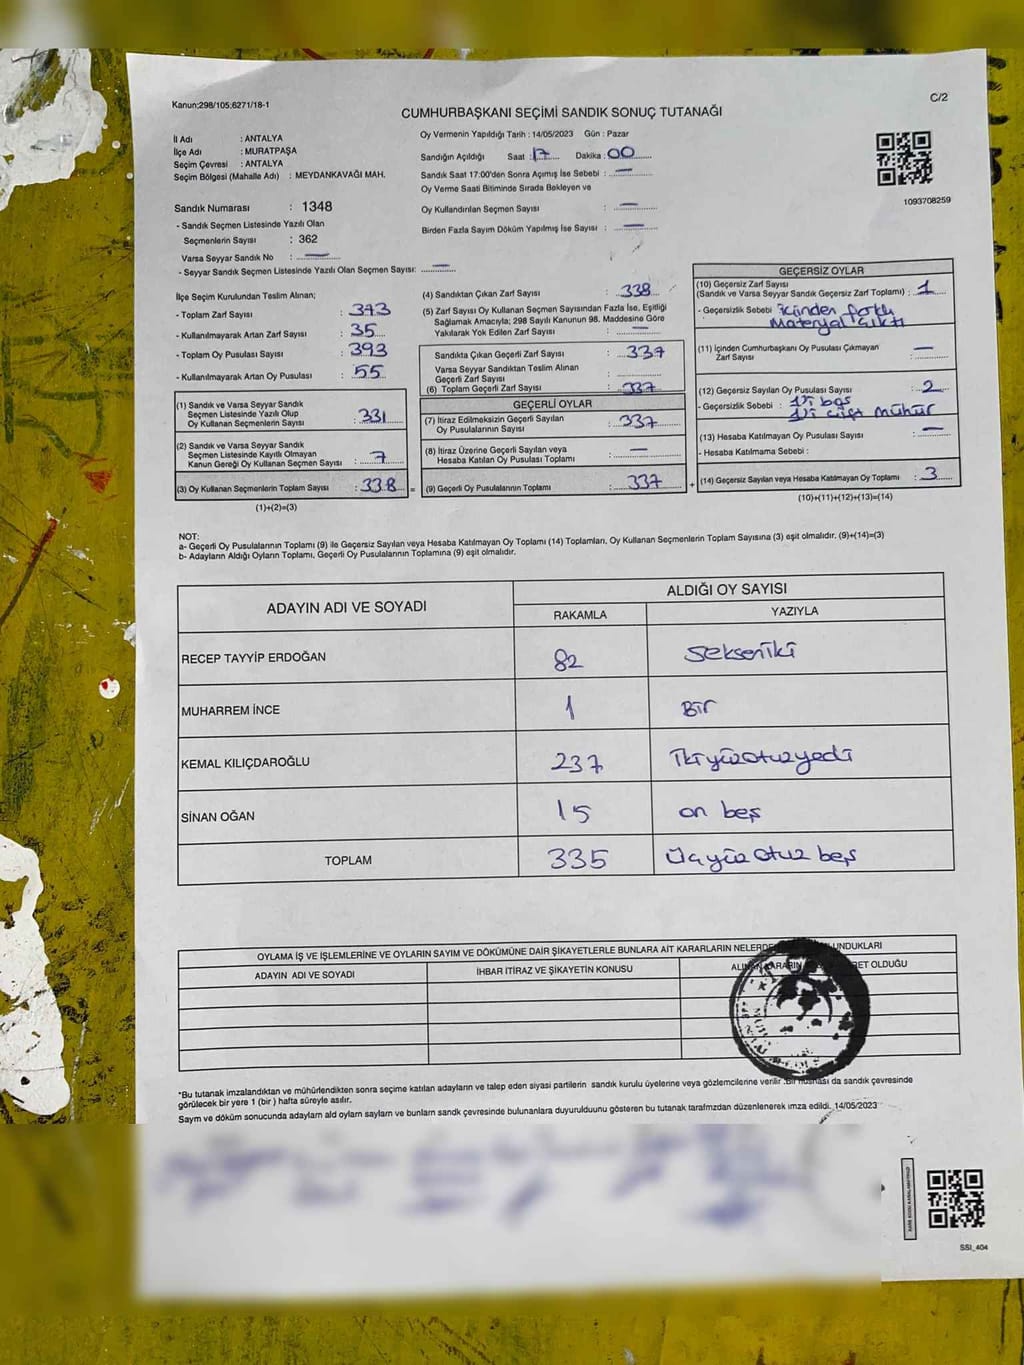 Kanun;298/105;6271/18-1
C/2
CUMHURBAŞKANI SEÇİMİ SANDIK SONUÇ TUTANAĞI
İl Adı : ANTALYA
İlçe Adı : MURATPAŞA
Seçim Çevresi : ANTALYA
Seçim Bölgesi (Mahalle Adı) : MEYDANKAVAĞI MAH.
Sandık Numarası : 1348
- Sandık Seçmen Listesinde Yazılı Olan
Seçmenlerin Sayısı : 362
Varsa Seyyar Sandık No : —
- Seyyar Sandık Seçmen Listesinde Yazılı Olan Seçmen Sayısı: —
Oy Vermenin Yapıldığı Tarih : 14/05/2023 Gün : Pazar
Sandığın Açıldığı Saat : 17 Dakika : 00
Sandık Saat 17:00'den Sonra Açımış İse Sebebi : —
Oy Verme Saati Bitiminde Sırada Bekleyen ve
Oy Kullandırılan Seçmen Sayısı : —
Birden Fazla Sayım Döküm Yapılmış İse Sayısı : —
1093708259
İlçe Seçim Kurulundan Teslim Alınan;
- Toplam Zarf Sayısı : 373
- Kullanılmayarak Artan Zarf Sayısı : 35
- Toplam Oy Pusulası Sayısı : 393
- Kullanılmayarak Artan Oy Pusulası : 55
(1) Sandık ve Varsa Seyyar Sandık
Seçmen Listesinde Yazılı Olup
Oy Kullanan Seçmenlerin Sayısı : 331
(2) Sandık ve Varsa Seyyar Sandık
Seçmen Listesinde Kayıtlı Olmayan
Kanun Gereği Oy Kullanan Seçmen Sayısı : 7
(3) Oy Kullanan Seçmenlerin Toplam Sayısı : 338
(1)+(2)=(3)
(4) Sandıktan Çıkan Zarf Sayısı : 338
(5) Zarf Sayısı Oy Kullanan Seçmen Sayısından Fazla İse, Eşitliği
Sağlamak Amacıyla; 298 Sayılı Kanunun 98. Maddesine Göre
Yakılarak Yok Edilen Zarf Sayısı : —
Sandıkta Çıkan Geçerli Zarf Sayısı : 337
Varsa Seyyar Sandıktan Teslim Alınan
Geçerli Zarf Sayısı :
(6) Toplam Geçerli Zarf Sayısı : 337
GEÇERLİ OYLAR
(7) İtiraz Edilmeksizin Geçerli Sayılan
Oy Pusulalarının Sayısı : 337
(8) İtiraz Üzerine Geçerli Sayılan veya
Hesaba Katılan Oy Pusulası Toplamı : —
= (9) Geçerli Oy Pusulalarının Toplamı : 337
GEÇERSİZ OYLAR
(10) Geçersiz Zarf Sayısı
(Sandık ve Varsa Seyyar Sandık Geçersiz Zarf Toplamı) : 1
- Geçersizlik Sebebi : içinden farklı
Materyal çıktı
(11) İçinden Cumhurbaşkanı Oy Pusulası Çıkmayan
Zarf Sayısı : —
(12) Geçersiz Sayılan Oy Pusulası Sayısı : 2
- Geçersizlik Sebebi : 1'i boş
1'i çift mühür
(13) Hesaba Katılmayan Oy Pusulası Sayısı : —
- Hesaba Katılmama Sebebi :
+ (14) Geçersiz Sayılan veya Hesaba Katılmayan Oy Toplamı : 3
(10)+(11)+(12)+(13)=(14)
NOT:
a- Geçerli Oy Pusulalarının Toplamı (9) ile Geçersiz Sayılan veya Hesaba Katılmayan Oy Toplamı (14) Toplamları, Oy Kullanan Seçmenlerin Toplam Sayısına (3) eşit olmalıdır. (9)+(14)=(3)
b- Adayların Aldığı Oyların Toplamı, Geçerli Oy Pusulalarının Toplamına (9) eşit olmalıdır.
ADAYIN ADI VE SOYADI
ALDIĞI OY SAYISI
RAKAMLA YAZIYLA
RECEP TAYYİP ERDOĞAN 82 Sekseniki
MUHARREM İNCE 1 Bir
KEMAL KILIÇDAROĞLU 237 İkiyüzotuzyedi
SİNAN OĞAN 15 on beş
TOPLAM 335 Üçyüz otuz beş
OYLAMA İŞ VE İŞLEMLERİNE VE OYLARIN SAYIM VE DÖKÜMÜNE DAİR ŞİKAYETLERLE BUNLARA AİT KARARLARIN
ADAYIN ADI VE SOYADI İHBAR İTİRAZ VE ŞİKAYETİN KONUSU OLDUĞU
*Bu tutanak imzalandıktan ve mühürlendikten sonra seçime katılan adayların ve talep eden siyasi partilerin sandık kurulu üyelerine veya gözlemcilerine verilir .Bir nüshası da sandık çevresinde
görülecek bir yere 1 (bir ) hafta süreyle asılır.
Saym ve döküm sonucunda adaylarn ald oylarn saylarn ve bunlarn sandk çevresinde bulunanlara duyurulduunu gösteren bu tutanak tarafmzdan düzenlenerek imza edildi. 14/05/2023
SSI_404